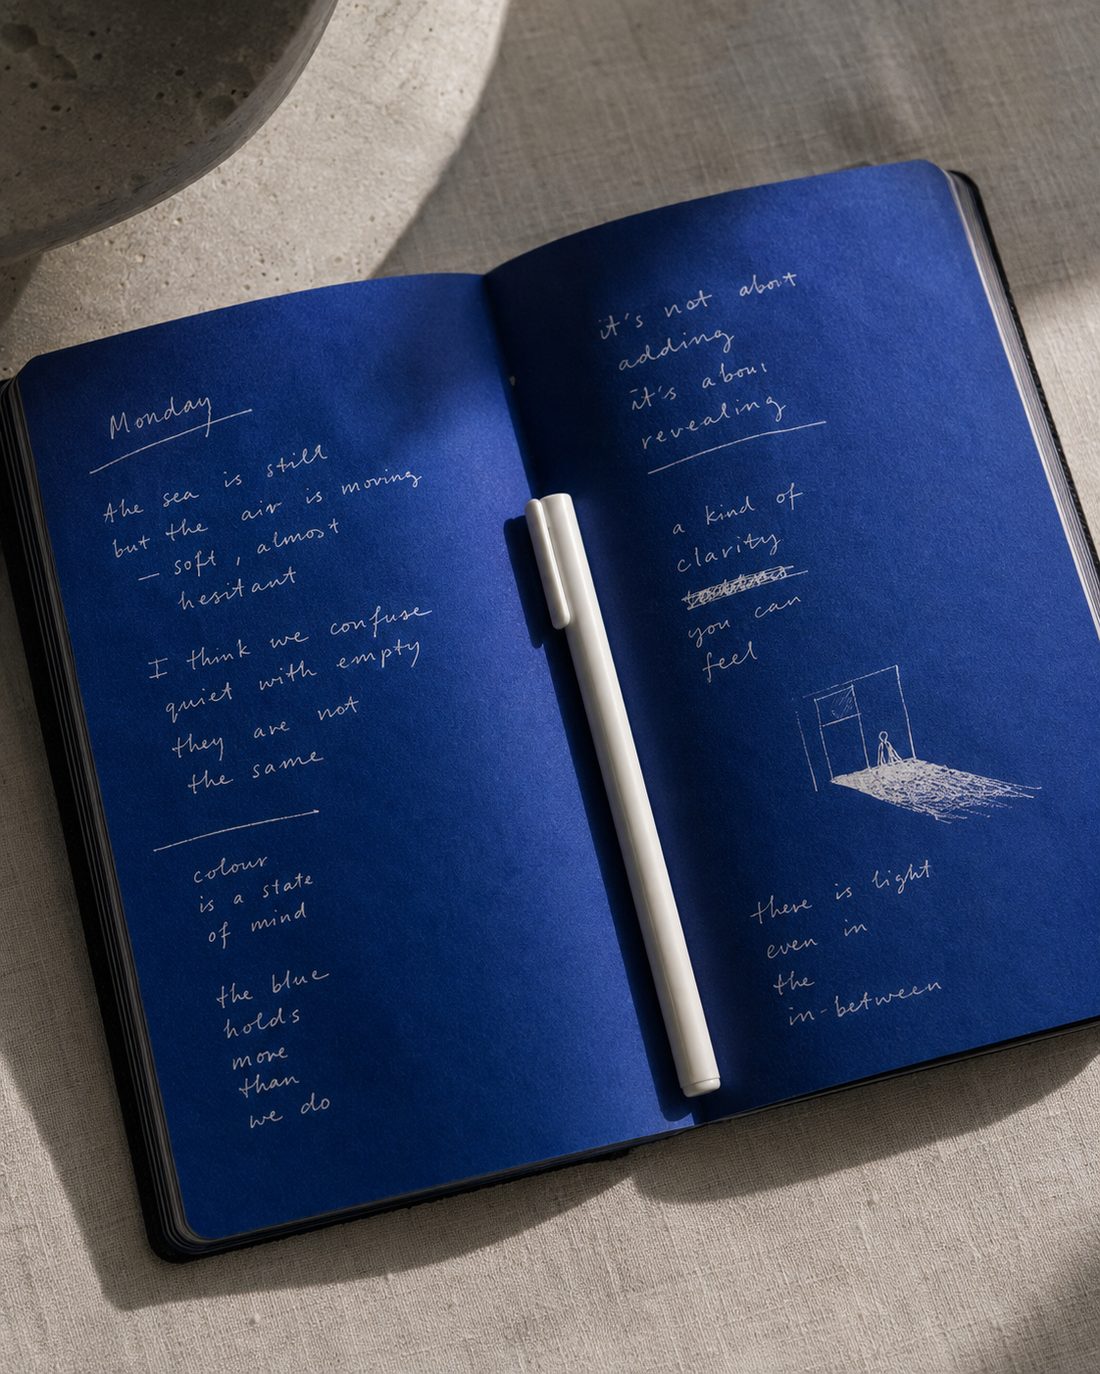 Monday
The sea is still
but the air is moving
— soft, almost
hesitant
I think we confuse
quiet with empty
they are not
the same
colour
is a state
of mind
the blue
holds
more
than
we do
it's not about
adding
it's about
revealing
a kind of
clarity
you can
feel
there is light
even in
the
in-between